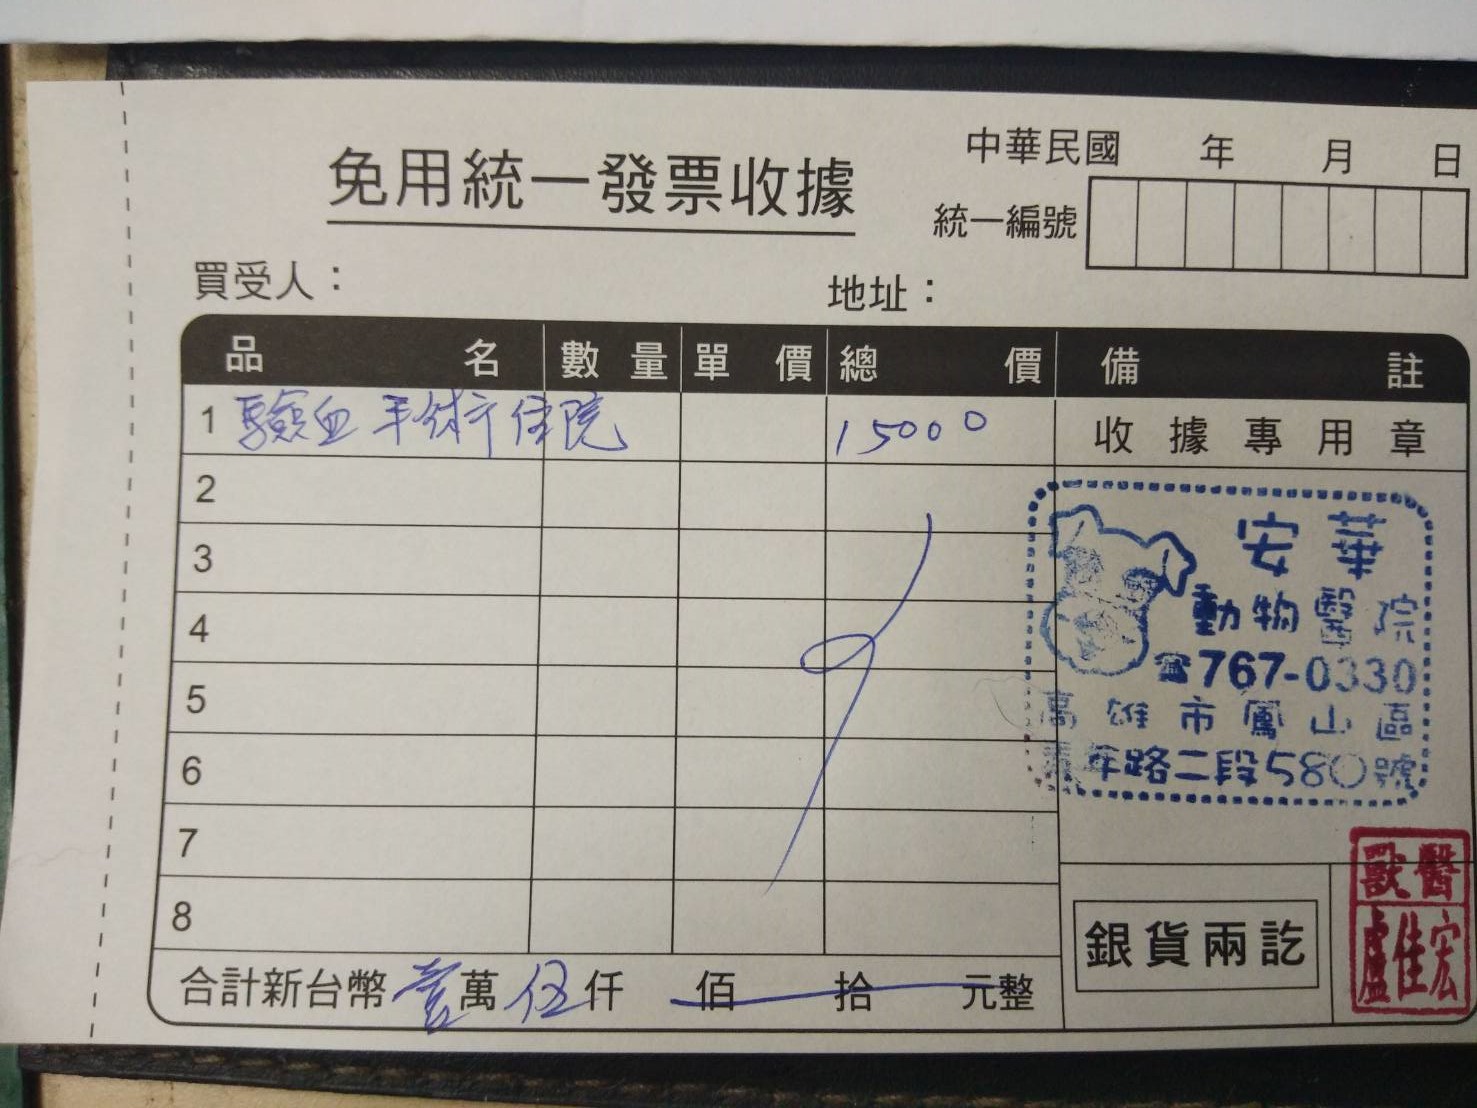 中華民國 年 月 日
免用統一發票收據
統一編號
買受人： 地址：
品名 數量 單價 總價 備註
1 驗血 手術 住院 15000 收據專用章
2
3
4
5
6
7
8
安華
動物醫院
☎767-0330
高雄市鳳山區
年路二段580號
銀貨兩訖
獸醫
盧佳宏
合計新台幣壹萬伍仟 佰 拾 元整